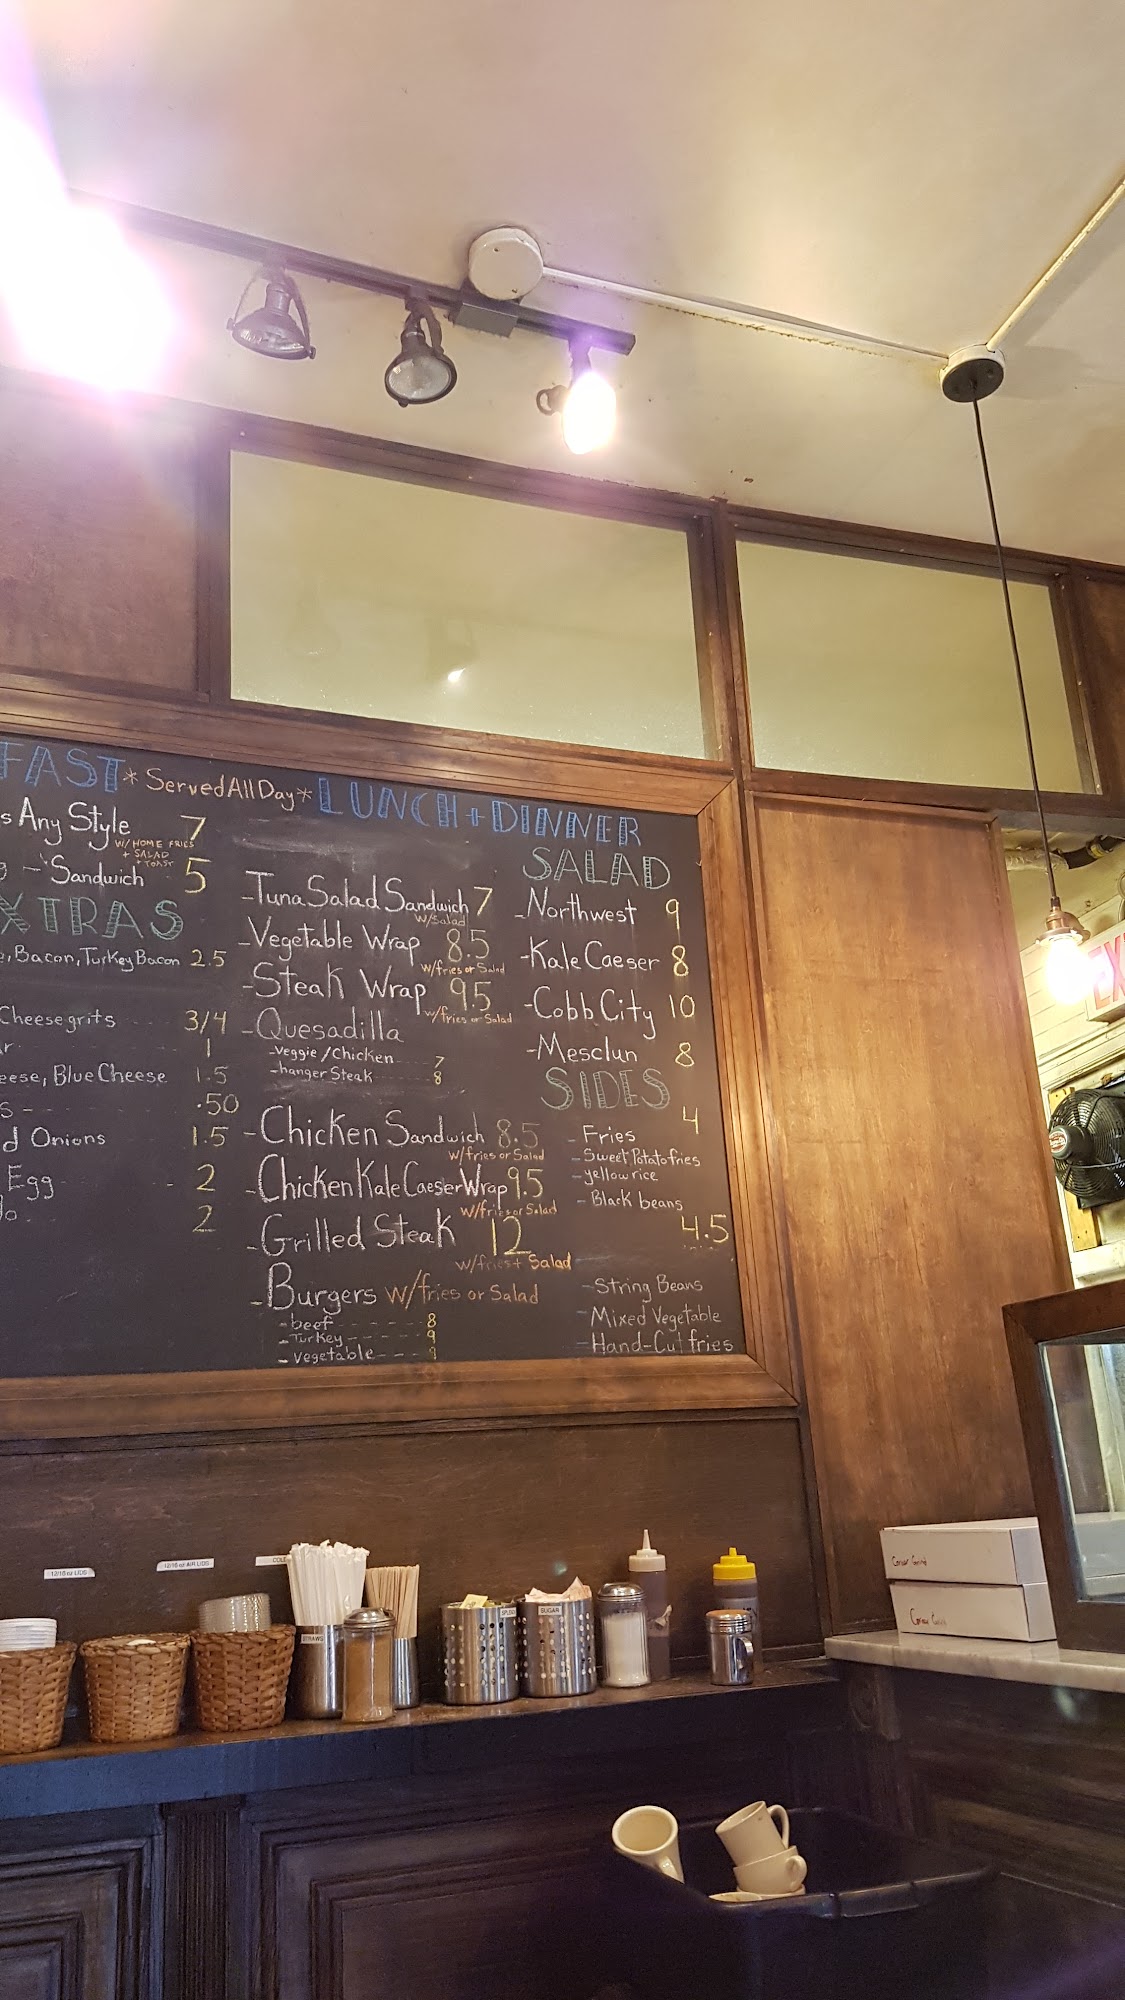 FAST *Served All Day* LUNCH + DINNER
s Any Style 7
W/ HOME FRIES
+ SALAD
+ TOAST
Sandwich 5
XTRAS
Bacon, Turkey Bacon 2.5
Cheesegrits 3/4
1
eese, Blue Cheese 1.5
s .50
d Onions 1.5
Egg 2
2
-Tuna Salad Sandwich 7
w/Salad
-Vegetable Wrap 8.5
w/fries or Salad
-Steak Wrap 9.5
w/fries or Salad
-Quesadilla
-veggie/Chicken 7
-hanger Steak 8
-Chicken Sandwich 8.5
w/fries or Salad
-Chicken Kale Caeser Wrap 9.5
w/fries or Salad
-Grilled Steak 12
w/fries + Salad
-Burgers w/fries or Salad
-beef 8
-Turkey 9
-vegetable 9
SALAD
-Northwest 9
-Kale Caeser 8
-Cobb City 10
-Mesclun 8
SIDES
4
-Fries
-Sweet Potato fries
-yellow rice
-Black beans
4.5
-String Beans
-Mixed Vegetable
-Hand-Cut fries
EX
12/16 oz LIDS
12/16 oz AIR LIDS
COL
STRAWS
SUGAR